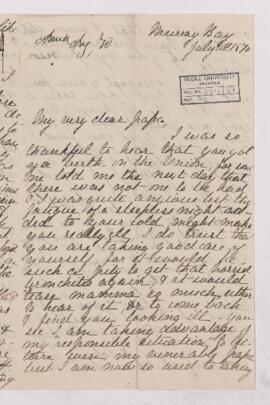 Murray Bay
July 1870
Anna
McGILL UNIVERSITY
ARCHIVES
ACC. NO.
REF.
My very dear papa,
I was so
thankful to hear that you got
a berth in the Union, for
me told me the next day that
there was not one to be had
I was quite anxious lest the
fatigue of a sleepless night ad-
ded to your cold, might make
you really ill. I do trust that
you are taking good care of
yourself, for it would be
such a pity to get that horrid
bronchitis again, & it would
tease mamma so much either
to hear of it, or to come back
& find you looking ill. You
see I am taking advantage of
my responsible situation, to lec-
ture even my venerable papa
but I am now so used to taking